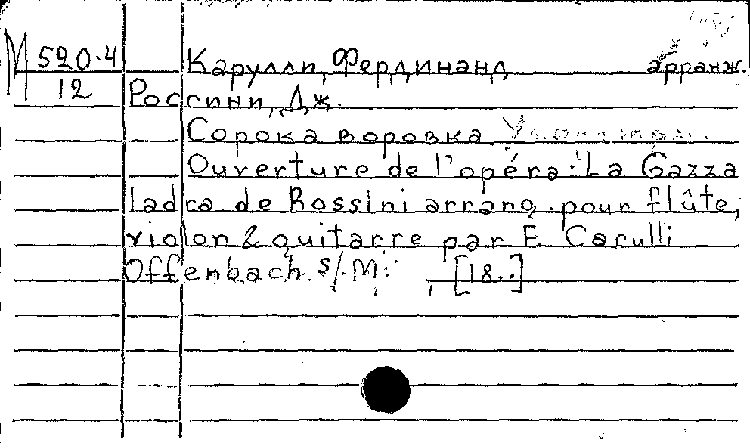 М 520.4
12
Карулли, Фердинанд арранж.
Россини, Дж.
Сорока воровка
Ouverture de l'opéra: La Gazza
ladra de Rossini arrang. pour flûte,
violon & guitarre par F. Carulli
Offenbach s/M. , [18..]